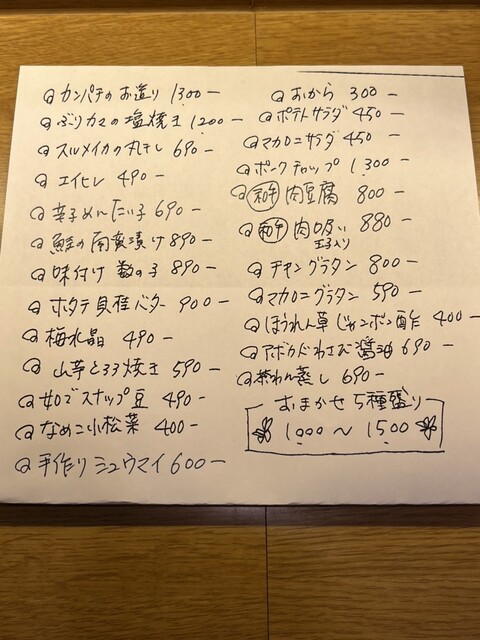 カンパチのお造り 1,300ー
ぶりカマの塩焼き 1,200ー
スルメイカの丸干し 690ー
エイヒレ 490ー
辛子めんたい子 690ー
鮭の南蛮漬け 890ー
味付け 数の子 890ー
ホタテ貝柱バター 900ー
梅水晶 490ー
山芋とろろ焼き 590ー
ゆでスナップ豆 490ー
なめこ小松菜 400ー
手作りシュウマイ 600ー
おから 300ー
ポテトサラダ 450ー
マカロニサラダ 450ー
ポークチャップ 1,300ー
和牛 肉豆腐 800ー
和牛 肉吸い 880ー
玉子入り
チキングラタン 800ー
マカロニグラタン 590ー
ほうれん草じゃこポン酢 400ー
アボカドわさび醤油 690ー
茶わん蒸し 690ー
おまかせ 5種盛り
1,000〜1,500